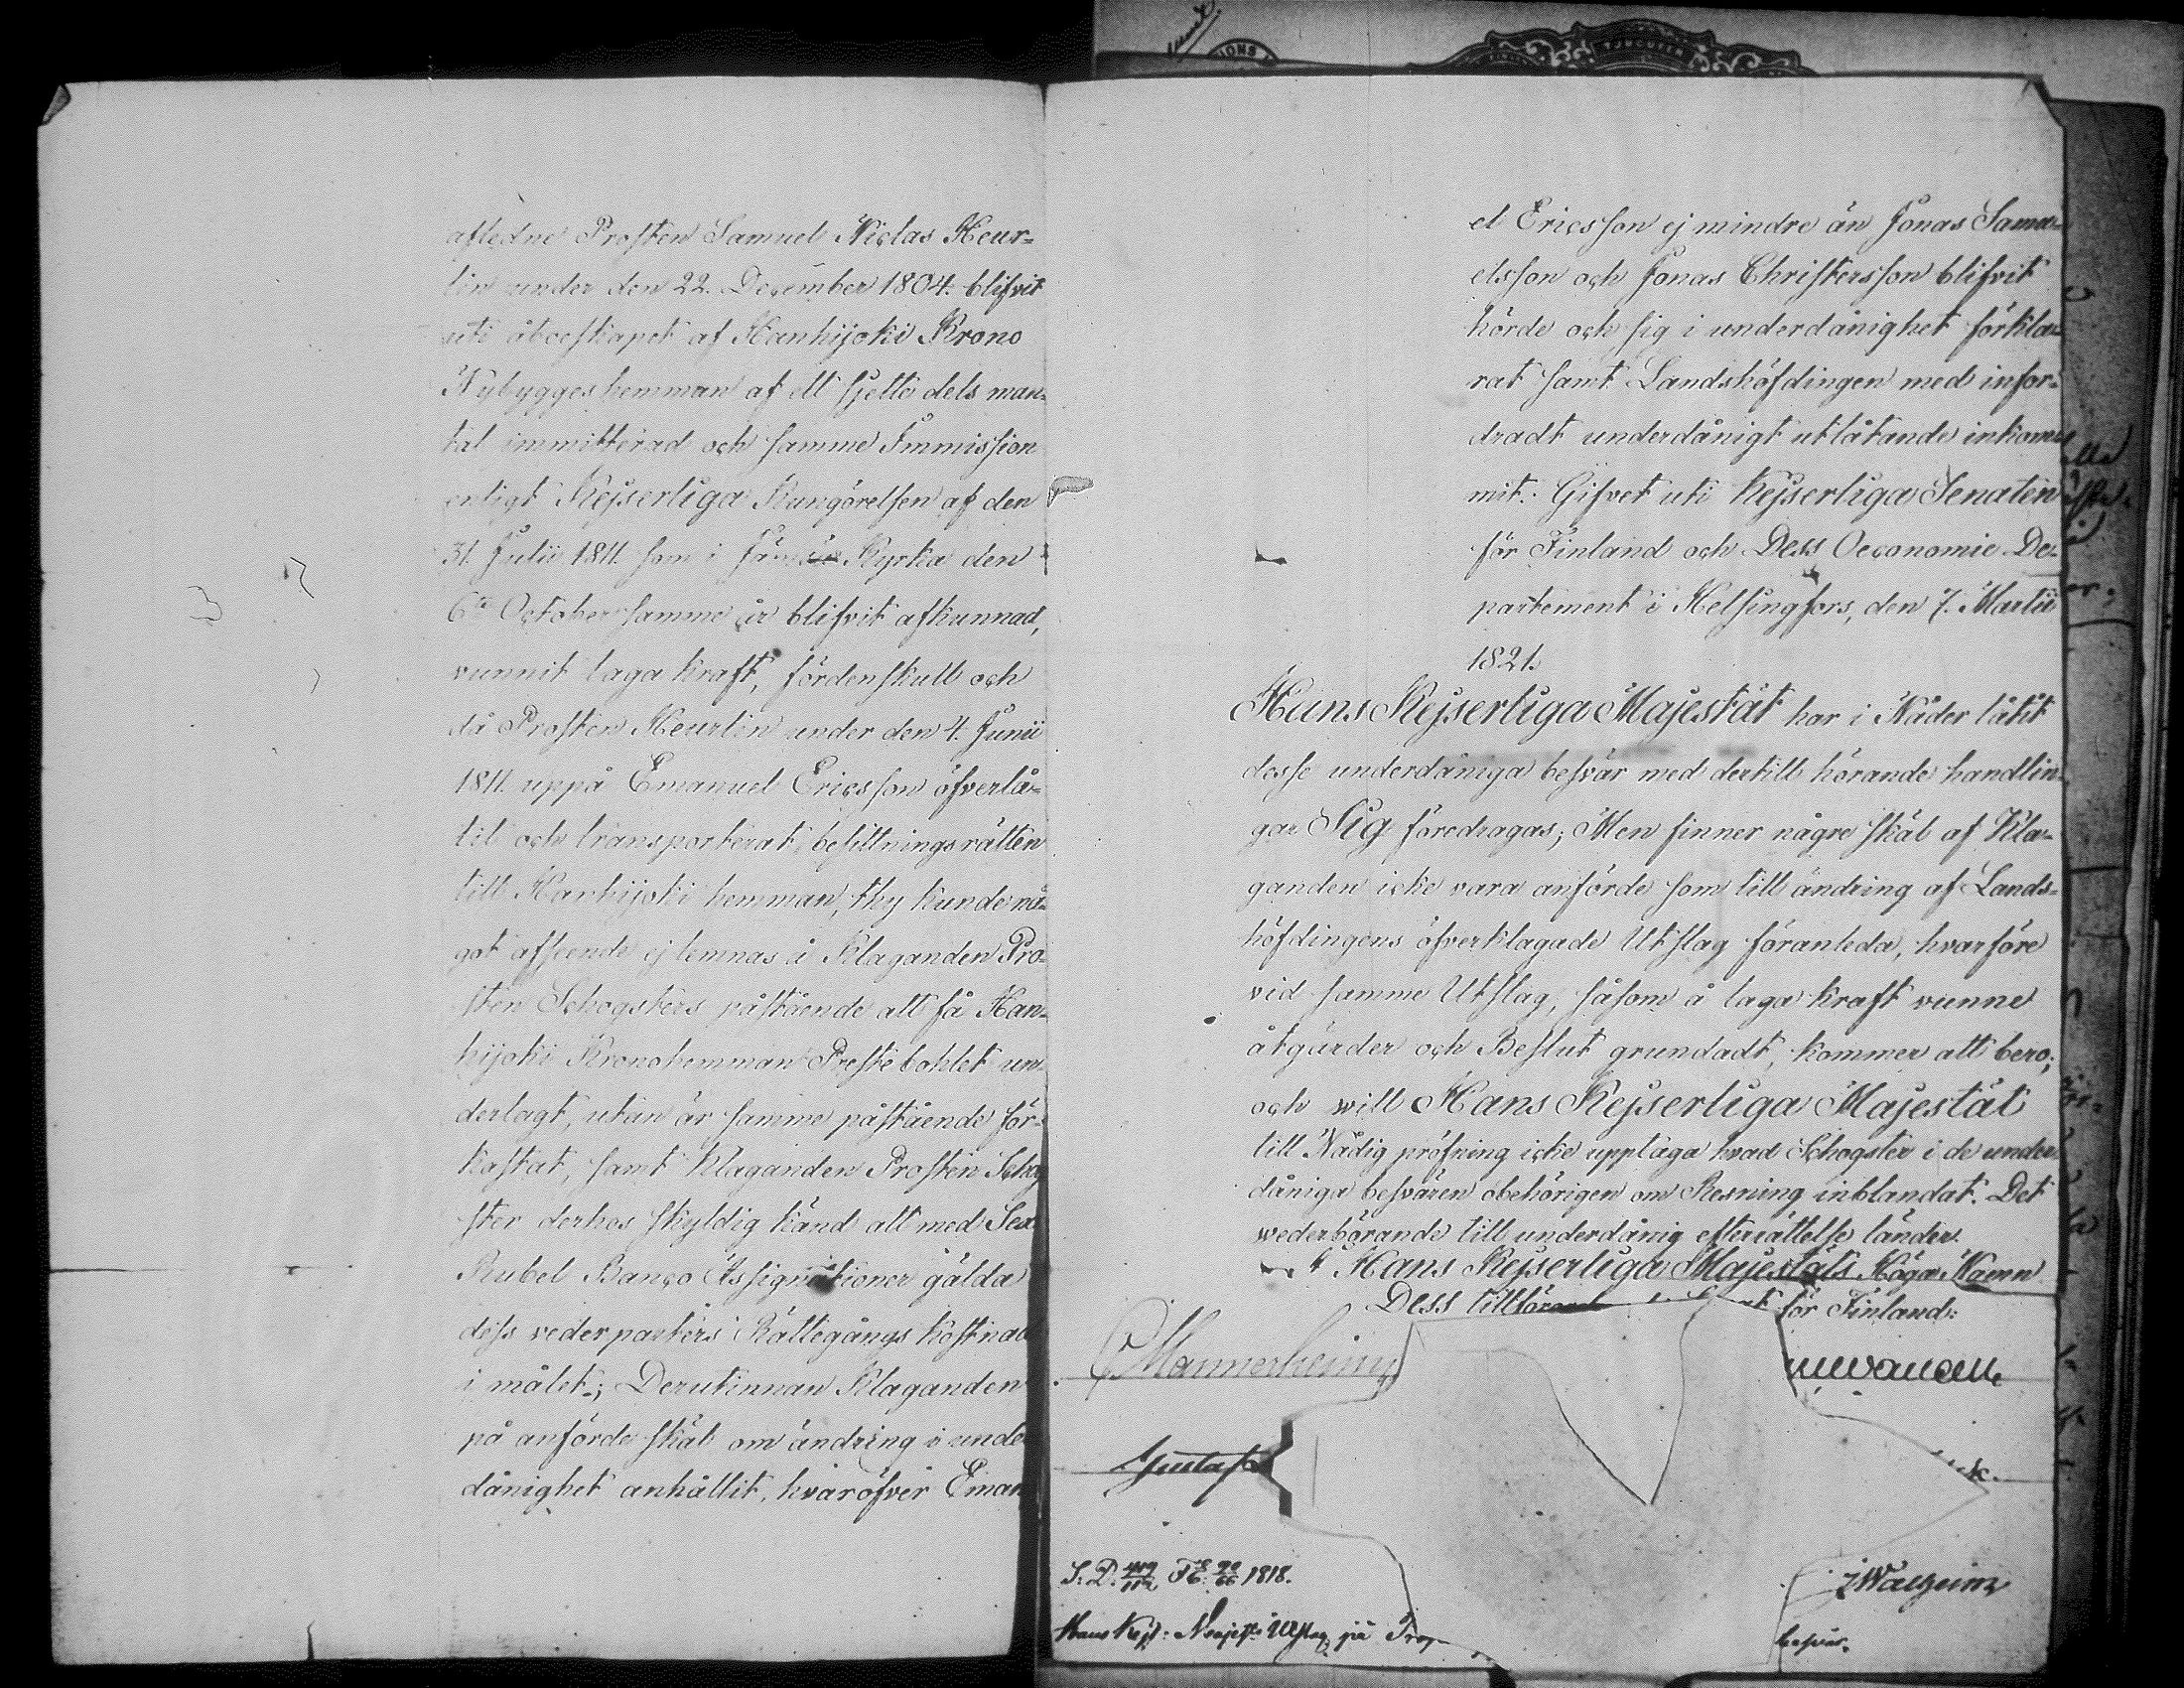 afledne Prosten Samuel Niclas Heur=
lin under den 22. December 1804. blifvit
uti åboeskapet af Hanhijoki Krono
Nybygges hemman af ett sjette dels man=
tal immitterad och samme Immission
enligt Kejserliga Kungörelsen af den
31. Julii 1811. som i Kyrka den
6te October samme år blifvit afkunnad,
vunnit laga kraft, fördenskull och
då Prosten Heurlin under den 4. Junii
1811. uppå Emanuel Ericsson öfverlå=
tit och transporterat besittningsrätten
till Hanhijoki hemman, thy kunde nå=
got afseende ej lemnas å Klaganden Pro=
sten Schogsters påstående att få Han=
hijoki Kronohemman Prestebohlet un=
derlagt, utan är samme påstående för=
kastat, samt Klaganden Prosten Schog
ster derhos skyldig känd att med Sex
Rubel Banco Assignationer gälda
dess vederparters Rättegångs kostnad
i målet; Derutinnan Klaganden
på anförde skäl om ändring i under
dånighet anhållit, hvaröfver Eman
el Ericsson ej mindre än Jonas Samu=
elsson och Jonas Christersson blifvit
hörde och sig i underdånighet förkla=
rat samt Landshöfdingen med infor=
dradt underdånigt utlåtande inkom=
mit: Gifvet uti Kejserliga Senaten
för Finland och Dess Oeconomie De=
partement i Helsingfors, den 7. Martii
1821.
Hans Kejserliga Majestät har i Nåder låtit
desse underdåniga besvär med dertill hörande handlin=
gar Sig föredragas; Men finner någre skäl af Kla=
ganden icke vara anförde som till ändring af Lands=
höfdingens öfverklagade Utslag föranleda, hvarföre
vid samme Utslag, såsom å laga kraft vunne
åtgärder och Beslut grundadt, kommer att bero;
och will Hans Kejserliga Majestät
till Nådig pröfning icke upptaga hvad Schogster i de under
dåniga besvären obehörigen om Resning inblandat. Det
wederbörande till underdånig efterrättelse länder.
I Hans Kejserliga Majestäts Höga Namn
Dess för Finland:
CMannerheim
Gustaf
JWalheim
S. D. 1818.
Hans Kejs: Majest: Utslag på
besvär.